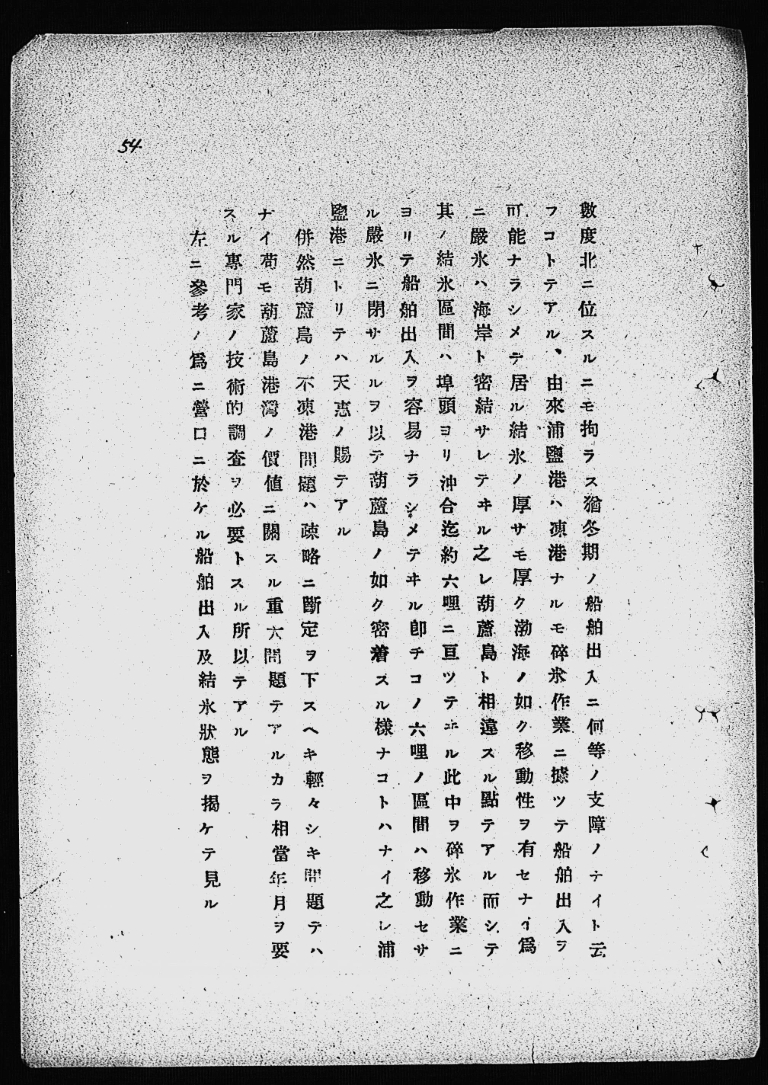 54
數度北ニ位スルニモ拘ラス猶冬期ノ船舶出入ニ何等ノ支障ノナイト云
フコトテアル、由來浦鹽港ハ凍港ナルモ碎氷作業ニ據ツテ船舶出入ヲ
可能ナラシメテ居ル結氷ノ厚サモ厚ク渤海ノ如ク移動性ヲ有セナイ爲
ニ嚴氷ハ海岸ト密結サレテヰル之レ葫蘆島ト相違スル點テアル而シテ
其ノ結氷區間ハ埠頭ヨリ沖合迄約六哩ニ亘ツテヰル此中ヲ碎氷作業ニ
ヨリテ船舶出入ヲ容易ナラシメテヰル卽チコノ六哩ノ區間ハ移動セサ
ル嚴氷ニ閉サルルヲ以テ葫蘆島ノ如ク密着スル樣ナコトハナイ之レ浦
鹽港ニトリテハ天惠ノ賜テアル
併然葫蘆島ノ不凍港問題ハ疎略ニ斷定ヲ下スヘキ輕々シキ問題テハ
ナイ苟モ葫蘆島港灣ノ價値ニ關スル重大問題テアルカラ相當年月ヲ要
スル專門家ノ技術的調査ヲ必要トスル所以テアル
左ニ參考ノ爲ニ營口ニ於ケル船舶出入及結氷狀態ヲ揭ケテ見ル